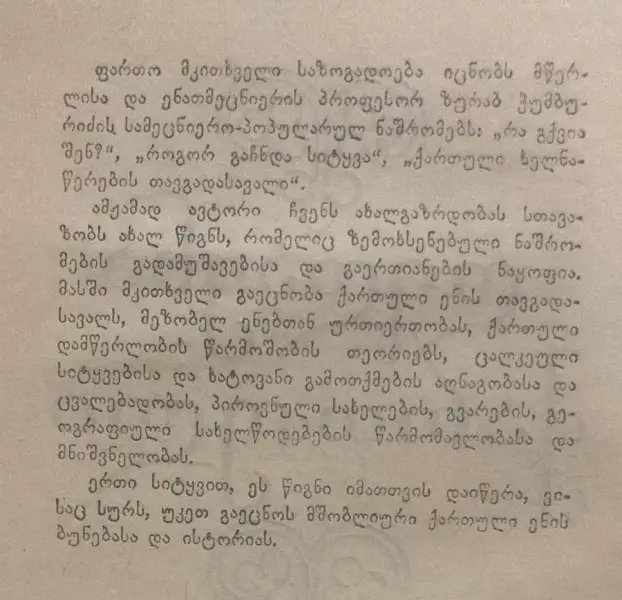 ფართო მკითხველი საზოგადოება იცნობს მწერ-
ლისა და ენათმეცნიერის პროფესორ ზურაბ ჭუმბუ-
რიძის სამეცნიერო-პოპულარულ ნაშრომებს: „რა გქვია
შენ?“, „როგორ გაჩნდა სიტყვა“, „ქართული ხელნა-
წერების თავგადასავალი“.
ამჟამად ავტორი ჩვენს ახალგაზრდობას სთავა-
ზობს ახალ წიგნს, რომელიც ზემოხსენებული ნაშრო-
მების გადამუშავებისა და გაერთიანების ნაყოფია.
მასში მკითხველი გაეცნობა ქართული ენის თავგადა-
სავალს, მეზობელ ენებთან ურთიერთობას, ქართული
დამწერლობის წარმოშობის თეორიებს, ცალკეული
სიტყვებისა და ხატოვანი გამოთქმების აღნაგობასა და
ცვალებადობას, პიროვნული სახელების, გვარების, გე-
ოგრაფიული სახელწოდებების წარმომავლობასა და
მნიშვნელობას.
ერთი სიტყვით, ეს წიგნი იმათთვის დაიწერა, ვი-
საც სურს, უკეთ გაეცნოს მშობლიური ქართული ენის
ბუნებასა და ისტორიას.